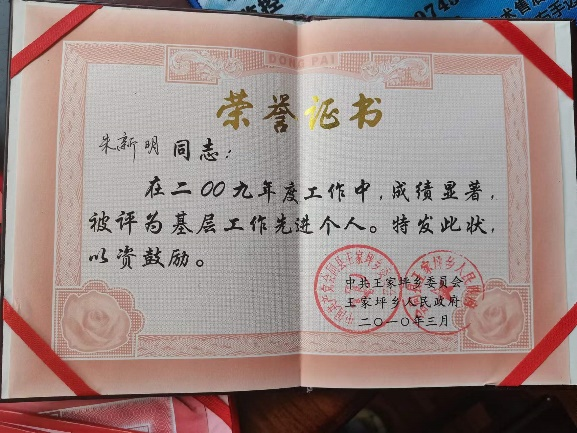 DONG PAI
荣誉证书
朱新明 同志：
在二00九年度工作中，成绩显著，
被评为基层工作先进个人。特发此状，
以资鼓励。
中共王家坪乡委员会
王家坪乡人民政府
二〇一〇年三月